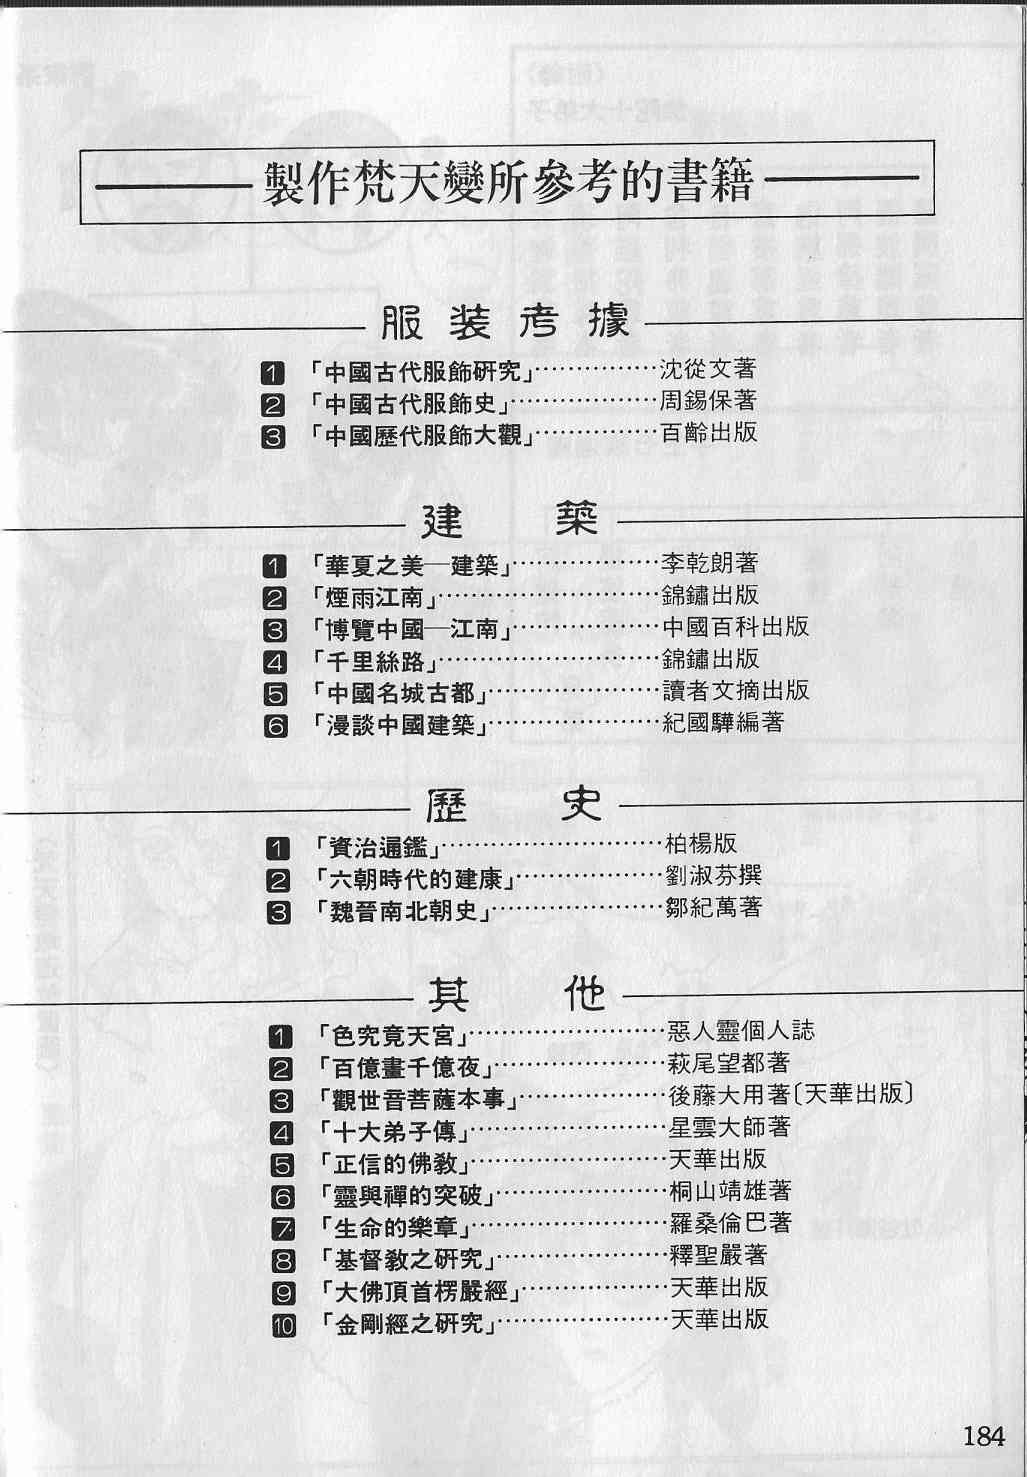 製作梵天變所參考的書籍
服裝考據
1 「中國古代服飾研究」……………沈從文著
2 「中國古代服飾史」………………周錫保著
3 「中國歷代服飾大觀」……………百齡出版
建築
1 「華夏之美─建築」………………李乾朗著
2 「煙雨江南」………………………錦鏽出版
3 「博覽中國─江南」………………中國百科出版
4 「千里絲路」………………………錦鏽出版
5 「中國名城古都」…………………讀者文摘出版
6 「漫談中國建築」…………………紀國驊編著
歷史
1 「資治通鑑」………………………柏楊版
2 「六朝時代的建康」………………劉淑芬撰
3 「魏晉南北朝史」…………………鄒紀萬著
其他
1 「色究竟天宮」……………………惡人靈個人誌
2 「百億晝千億夜」…………………萩尾望都著
3 「觀世音菩薩本事」………………後藤大用著〔天華出版〕
4 「十大弟子傳」……………………星雲大師著
5 「正信的佛教」……………………天華出版
6 「靈與禪的突破」…………………桐山靖雄著
7 「生命的樂章」……………………羅桑倫巴著
8 「基督教之研究」…………………釋聖嚴著
9 「大佛頂首楞嚴經」………………天華出版
10 「金剛經之研究」…………………天華出版
184